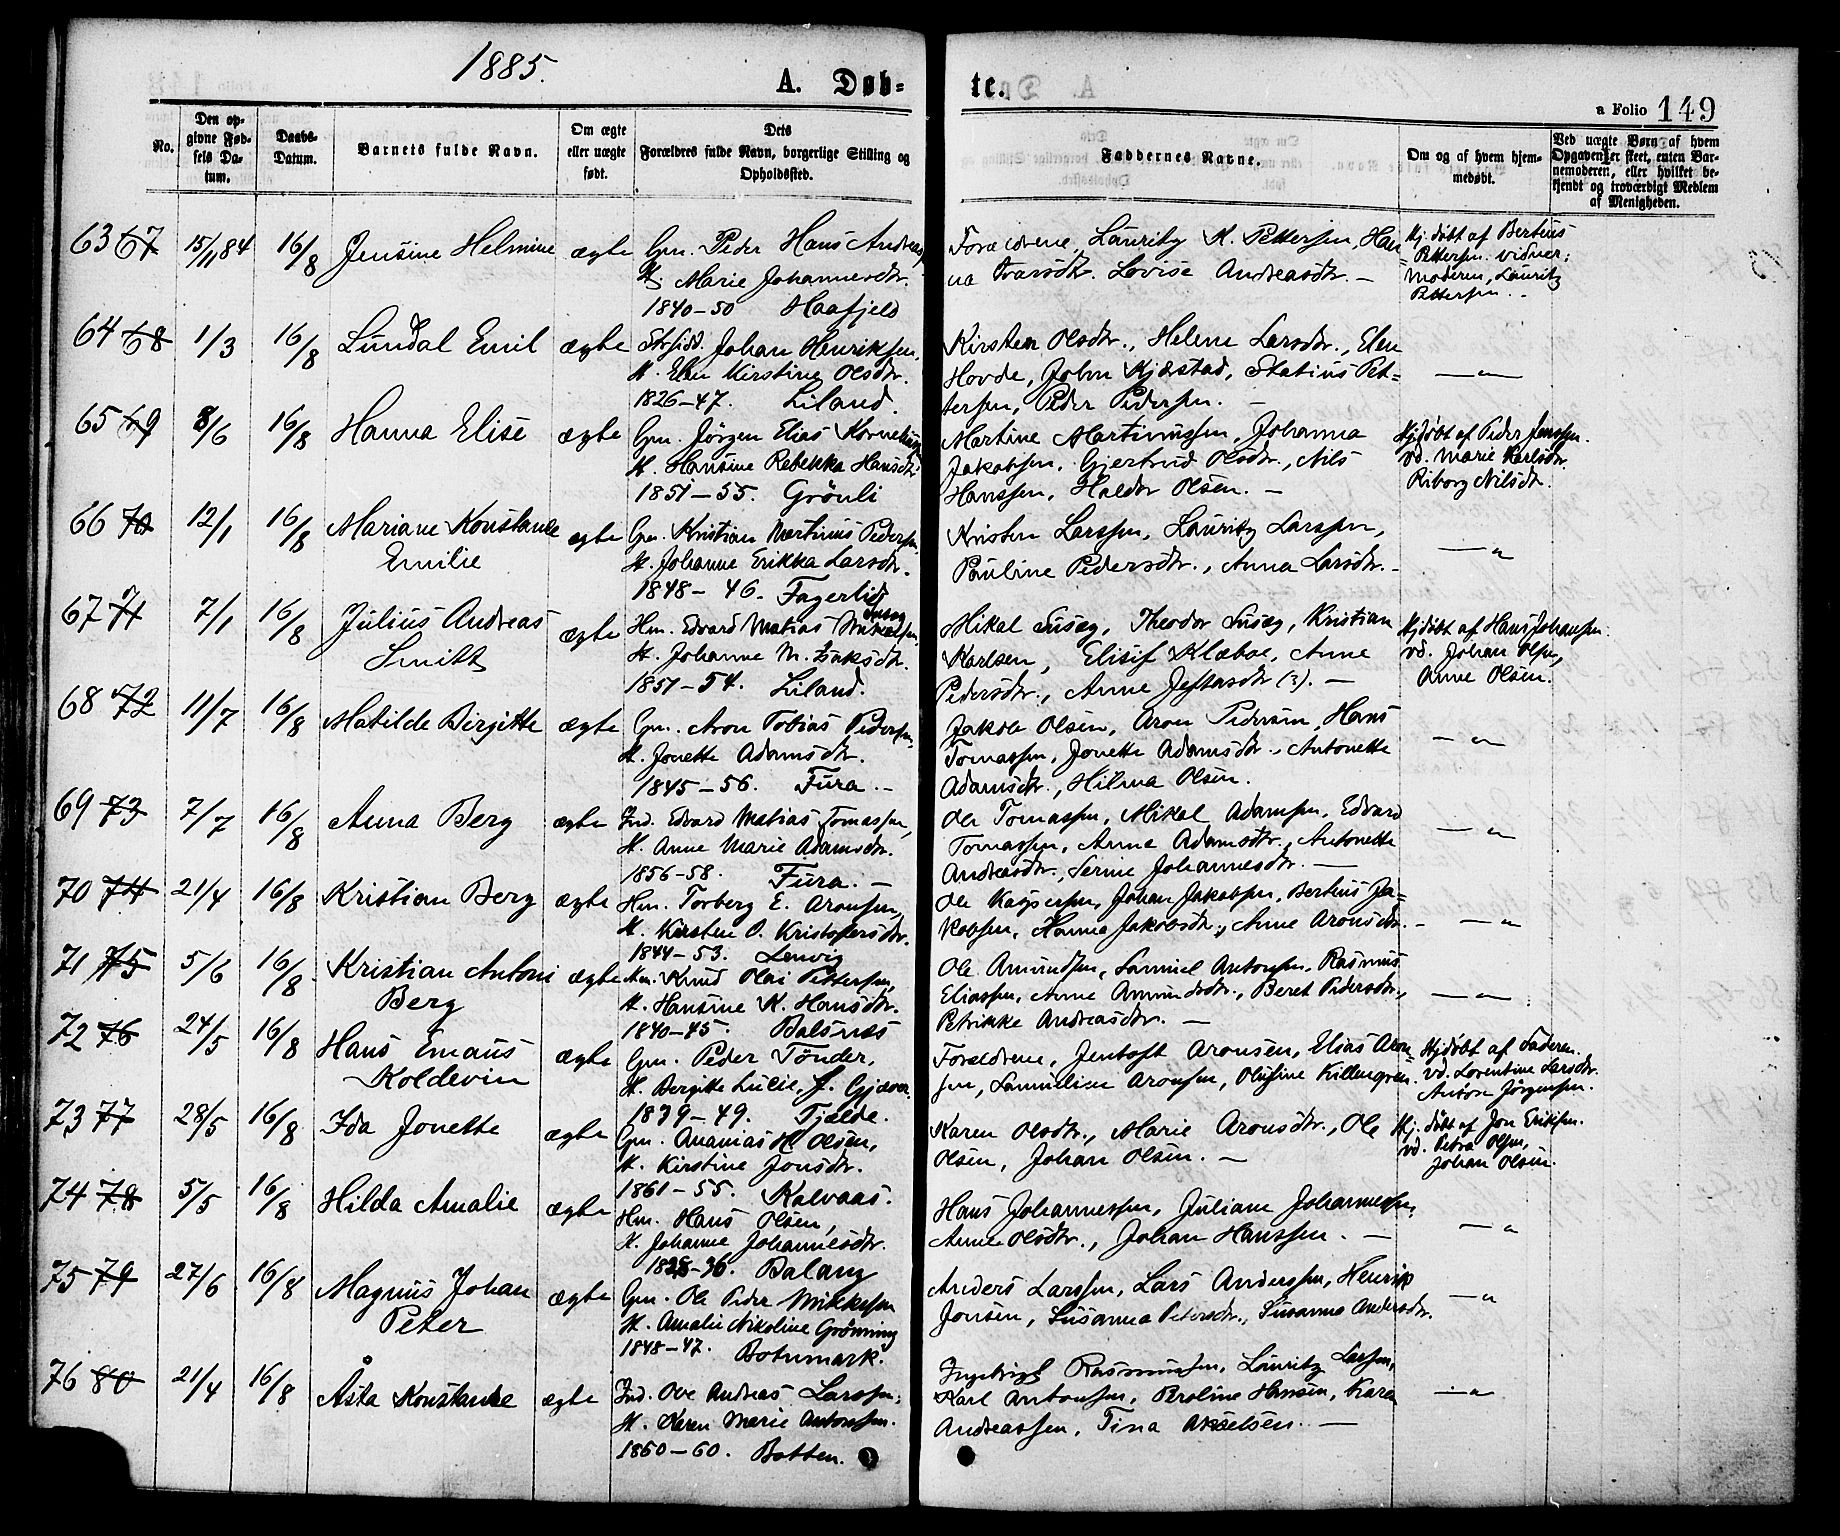 1885.
A. Døb-
te.
a Folio 149
No.
Den op-
givne Fød-
sels Da-
tum.
Daabs-
Datum.
Barnets fulde Navn.
Om ægte
eller uægte
født.
Dets
Forældres fulde Navn, borgerlige Stilling og
Opholdssted.
Faddernes Navne.
Om og af hvem hjem-
medøbt.
Ved uægte Børn af hvem
Opgaven er skeet, enten Bar-
nemoderen, eller hvilket be-
kjendt og troværdigt Medlem
af Menigheden.
63 67 15/11 84 16/8 Jensine Helmine ægte
Gm. Peder Hans Andreas
H. Marie Johannesdtr.
1840-50 Haafjeld
Forældrene, Lauritz K. Pettersen, Han-
na Ivarsdtr. Lovise Andreasdtr. -
Hj. døbt af Berteus
Pettersen. vidner;
Moderen, Lauritz
Pettersen. -
64 68 1/3 16/8 Lundal Emil ægte
Johan Henriksen,
H. Elen Kirstine Olsdtr.
1826-47. Liland.
Kirsten Olsdtr., Helene Larsdtr., Elen
Hovde, John Kjærstad, Statius Pet-
tersen, Peder Pedersen. -
— " —
65 69 8/6 16/8 Hanna Elise ægte
Gm. Jörgen Elias Korneliussen
H. Hansine Rebekka Hansdtr.
1851-55. Grönli
Martine Martinussen, Johanna
Jakobsen, Gjertrud Olsdtr., Nils
Hanssen, Haldor Olsen. -
Hjdöbt af Peder Jenssen.
vd. Marie Karlsdtr.
Riborg Nilsdtr.
66 70 12/1 16/8 Mariane Konstanse
Emilie ægte
Gm. Kristian Martinus Pedersen,
H. Johanne Erikka Larsdtr.
1848-46. Fagerlid
Kristen Larssen, Lauritz Larssen,
Pauline Pedersdtr., Anna Larsdtr. -
— "
67 71 7/1 16/8 Julius Andreas
Smitt ægte
Hm. Edvard Matias Mikalsen
H. Johanne M. Isaksdtr.
1851-54. Liland.
Mikal Husæg, Theodor Husæg, Kristian
Karlsen, Elisif Klæboe, Anne
Pedersdtr., Anne Jeftasdtr (?). -
Hjdöbt af Hans Johansen.
vd. Johan Olsen,
Anne Olsen.
68 72 11/7 16/8 Matilde Birgitte ægte
Gm. Aron Tobias Pedersen,
H. Jonette Adamsdtr.
1845-56. Fura. -
Jakob Olsen, Aron Pedersen, Hans
Tomassen, Jonette Adamsdtr., Antonette
Adamsdtr., Hilma Olsen.
— " —
69 73 7/7 16/8 Anna Berg ægte
Ind. Edvard Matias Tomassen,
H. Anne Marie Adamsdtr.
1856-58. Fura. -
Ole Tomassen, Mikal Adamsen, Edvard
Tomassen, Anne Adamsdtr., Antonette
Andreasdtr., Serine Johannesdtr. —
— " —
70 74 21/4 16/8 Kristian Berg ægte
Hm. Torberg E. Aronsen,
H. Kirsten O. Kristofersdtr.
1844-53. Lenvig
Ole Kaspersen, Johan Jakobsen, Berteus Ja-
kobsen, Hanna Jakobsdtr., Anne Aronsdtr. -
— "
71 75 5/6 16/8 Kristian Antoni
Berg ægte
Knud Olai Pettersen,
H. Hansine K. Hansdtr.
1840-45. Balsnes
Ole Amundsen, Samuel Antonsen, Rasmus
Eliassen, Anne Amundsdtr., Beret Pedersdtr.,
Petrikke Andreasdtr. —
— " —
72 76 24/5 16/8 Hans Emaus
Koldevin ægte
Gm. Peder Tönder,
H. Bergitte Lucie,
1839-49. Tjelde.
Forældrene, Jentoft Aronsen, Elias Aron-
sen, Aronsen, Olufine Killengren.
Hjdöbt af Faderen.
vd. Lorentine Larsdtr.
Anton Jörgensen.
73 77 28/5 16/8 Ida Jonette ægte
Gm. Ananias H Olsen,
H. Kirstine Jonsdtr.
1861-55. Kalvaas.
Karen Olsdtr., Marie Aronsdtr., Ole
Olsen, Johan Olsen. —
Hj. döbt af Jon Eriksen.
vd. Petra Olsen,
Johan Olsen.
74 78 5/5 16/8 Hilda Amalie ægte
Hm. Hans Olsen,
H. Johanne Johannesdtr.
1828-36. Balang
Hans Johannessen, Juliane Johannessen,
Anne Olsdtr., Johan Hanssen. —
— "
75 79 27/6 16/8 Magnus Johan
Peter ægte
Gm. Ole Peder Mikkelsen
H. Amalie Nikoline Grönning
1848-47. Botnmark.
Anders Larssen, Lars Anderssen, Henrik
Jonsen, Susanna Petersdtr., Susanna Andersdtr.
— "
76 80 21/4 16/8 Åsta Konstanse ægte
Ind. Ove Andreas Larssen,
H. Karen Marie Antonsen.
1860-60. Botten.
Ingebrigt Rasmussen, Lauritz Larsen,
Karl Antonsen, Beroline Hansen, Karen
Andreassen, Tina Akselsen. —
— "